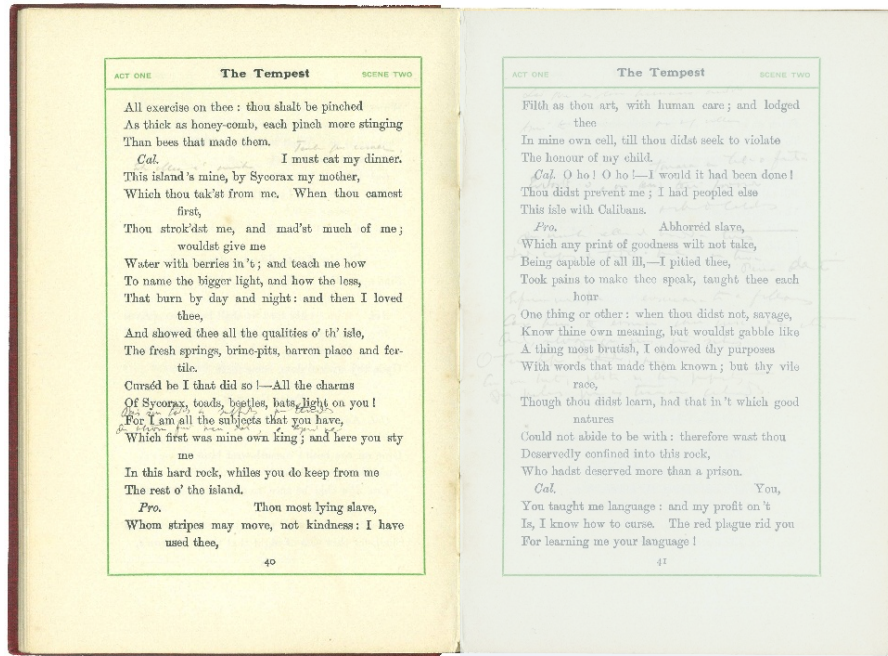 ACT ONE The Tempest SCENE TWO
All exercise on thee : thou shalt be pinched
As thick as honey-comb, each pinch more stinging
Than bees that made them.
Cal. I must eat my dinner.
This island's mine, by Sycorax my mother,
Which thou tak'st from me. When thou camest
first,
Thou strok'dst me, and mad'st much of me ;
wouldst give me
Water with berries in 't ; and teach me how
To name the bigger light, and how the less,
That burn by day and night : and then I loved
thee,
And showed thee all the qualities o' th' isle,
The fresh springs, brine-pits, barren place and fer-
tile.
Curséd be I that did so !—All the charms
Of Sycorax, toads, beetles, bats, light on you !
For I am all the subjects that you have,
Which first was mine own king ; and here you sty
me
In this hard rock, whiles you do keep from me
The rest o' the island.
Pro. Thou most lying slave,
Whom stripes may move, not kindness : I have
used thee,
40
ACT ONE The Tempest SCENE TWO
Filth as thou art, with human care ; and lodged
thee
In mine own cell, till thou didst seek to violate
The honour of my child.
Cal. O ho ! O ho !—I would it had been done !
Thou didst prevent me ; I had peopled else
This isle with Calibans.
Pro. Abhorréd slave,
Which any print of goodness wilt not take,
Being capable of all ill,—I pitied thee,
Took pains to make thee speak, taught thee each
hour
One thing or other : when thou didst not, savage,
Know thine own meaning, but wouldst gabble like
A thing most brutish, I endowed thy purposes
With words that made them known ; but thy vile
race,
Though thou didst learn, had that in 't which good
natures
Could not abide to be with : therefore wast thou
Deservedly confined into this rock,
Who hadst deserved more than a prison.
Cal. You,
You taught me language : and my profit on 't
Is, I know how to curse. The red plague rid you
For learning me your language !
41